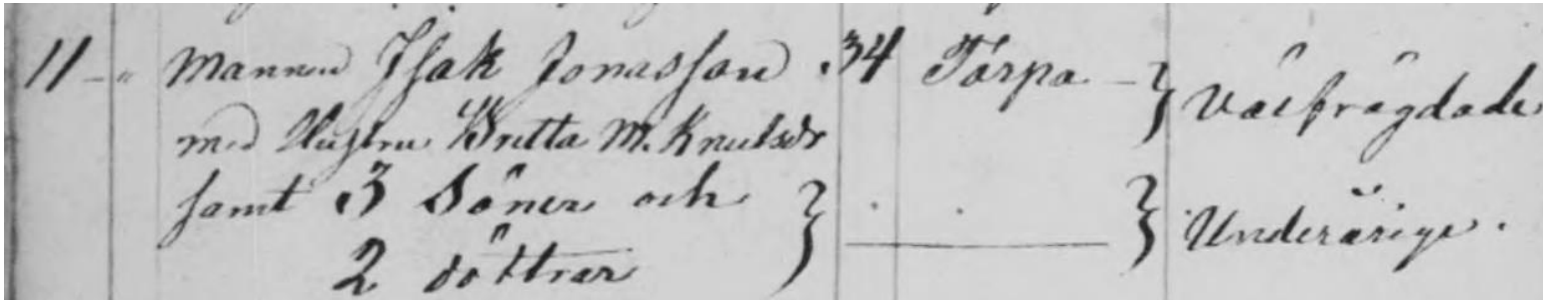 11 - " Mannen Isak Jonasson 34 Torpa - } Välfrägdade
med Hustru Britta M. Knutsdr
samt 3 Söner och } . . } Underårige.
2 döttrar